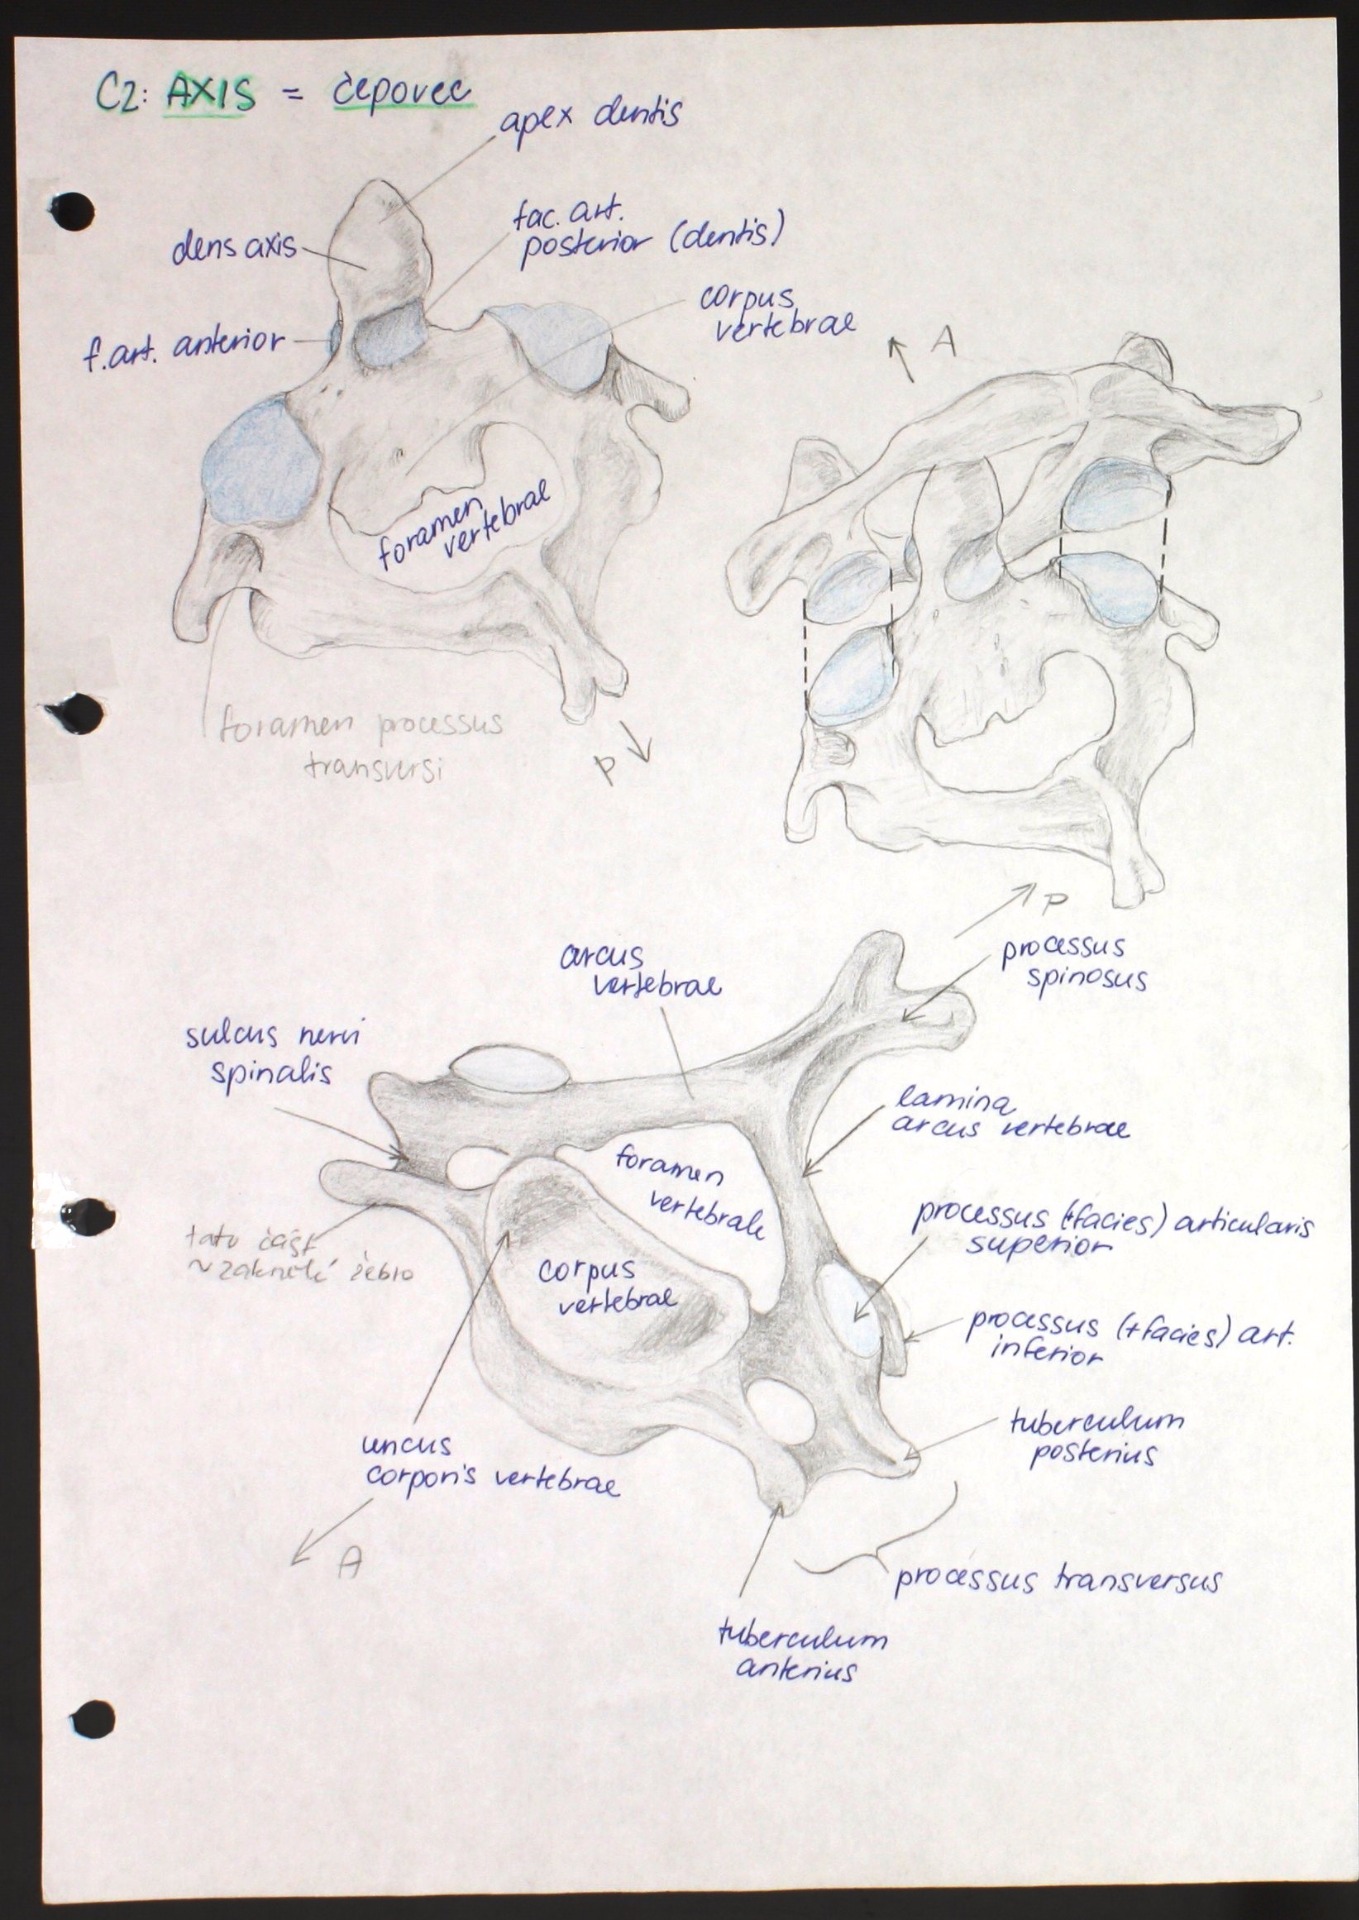 C2: AXIS = čepovec
apex dentis
dens axis
fac. art.
posterior (dentis)
f. art. anterior
corpus
vertebrae
A
foramen
vertebrae
foramen processus
transversi
P
P
processus
spinosus
arcus
vertebrae
sulcus nervi
spinalis
lamina
arcus vertebrae
foramen
vertebrale
processus (+facies) articularis
superior
tato část
~ zakrnělé žebro
corpus
vertebrae
processus (+facies) art.
inferior
tuberculum
posterius
uncus
corporis vertebrae
A
processus transversus
tuberculum
anterius